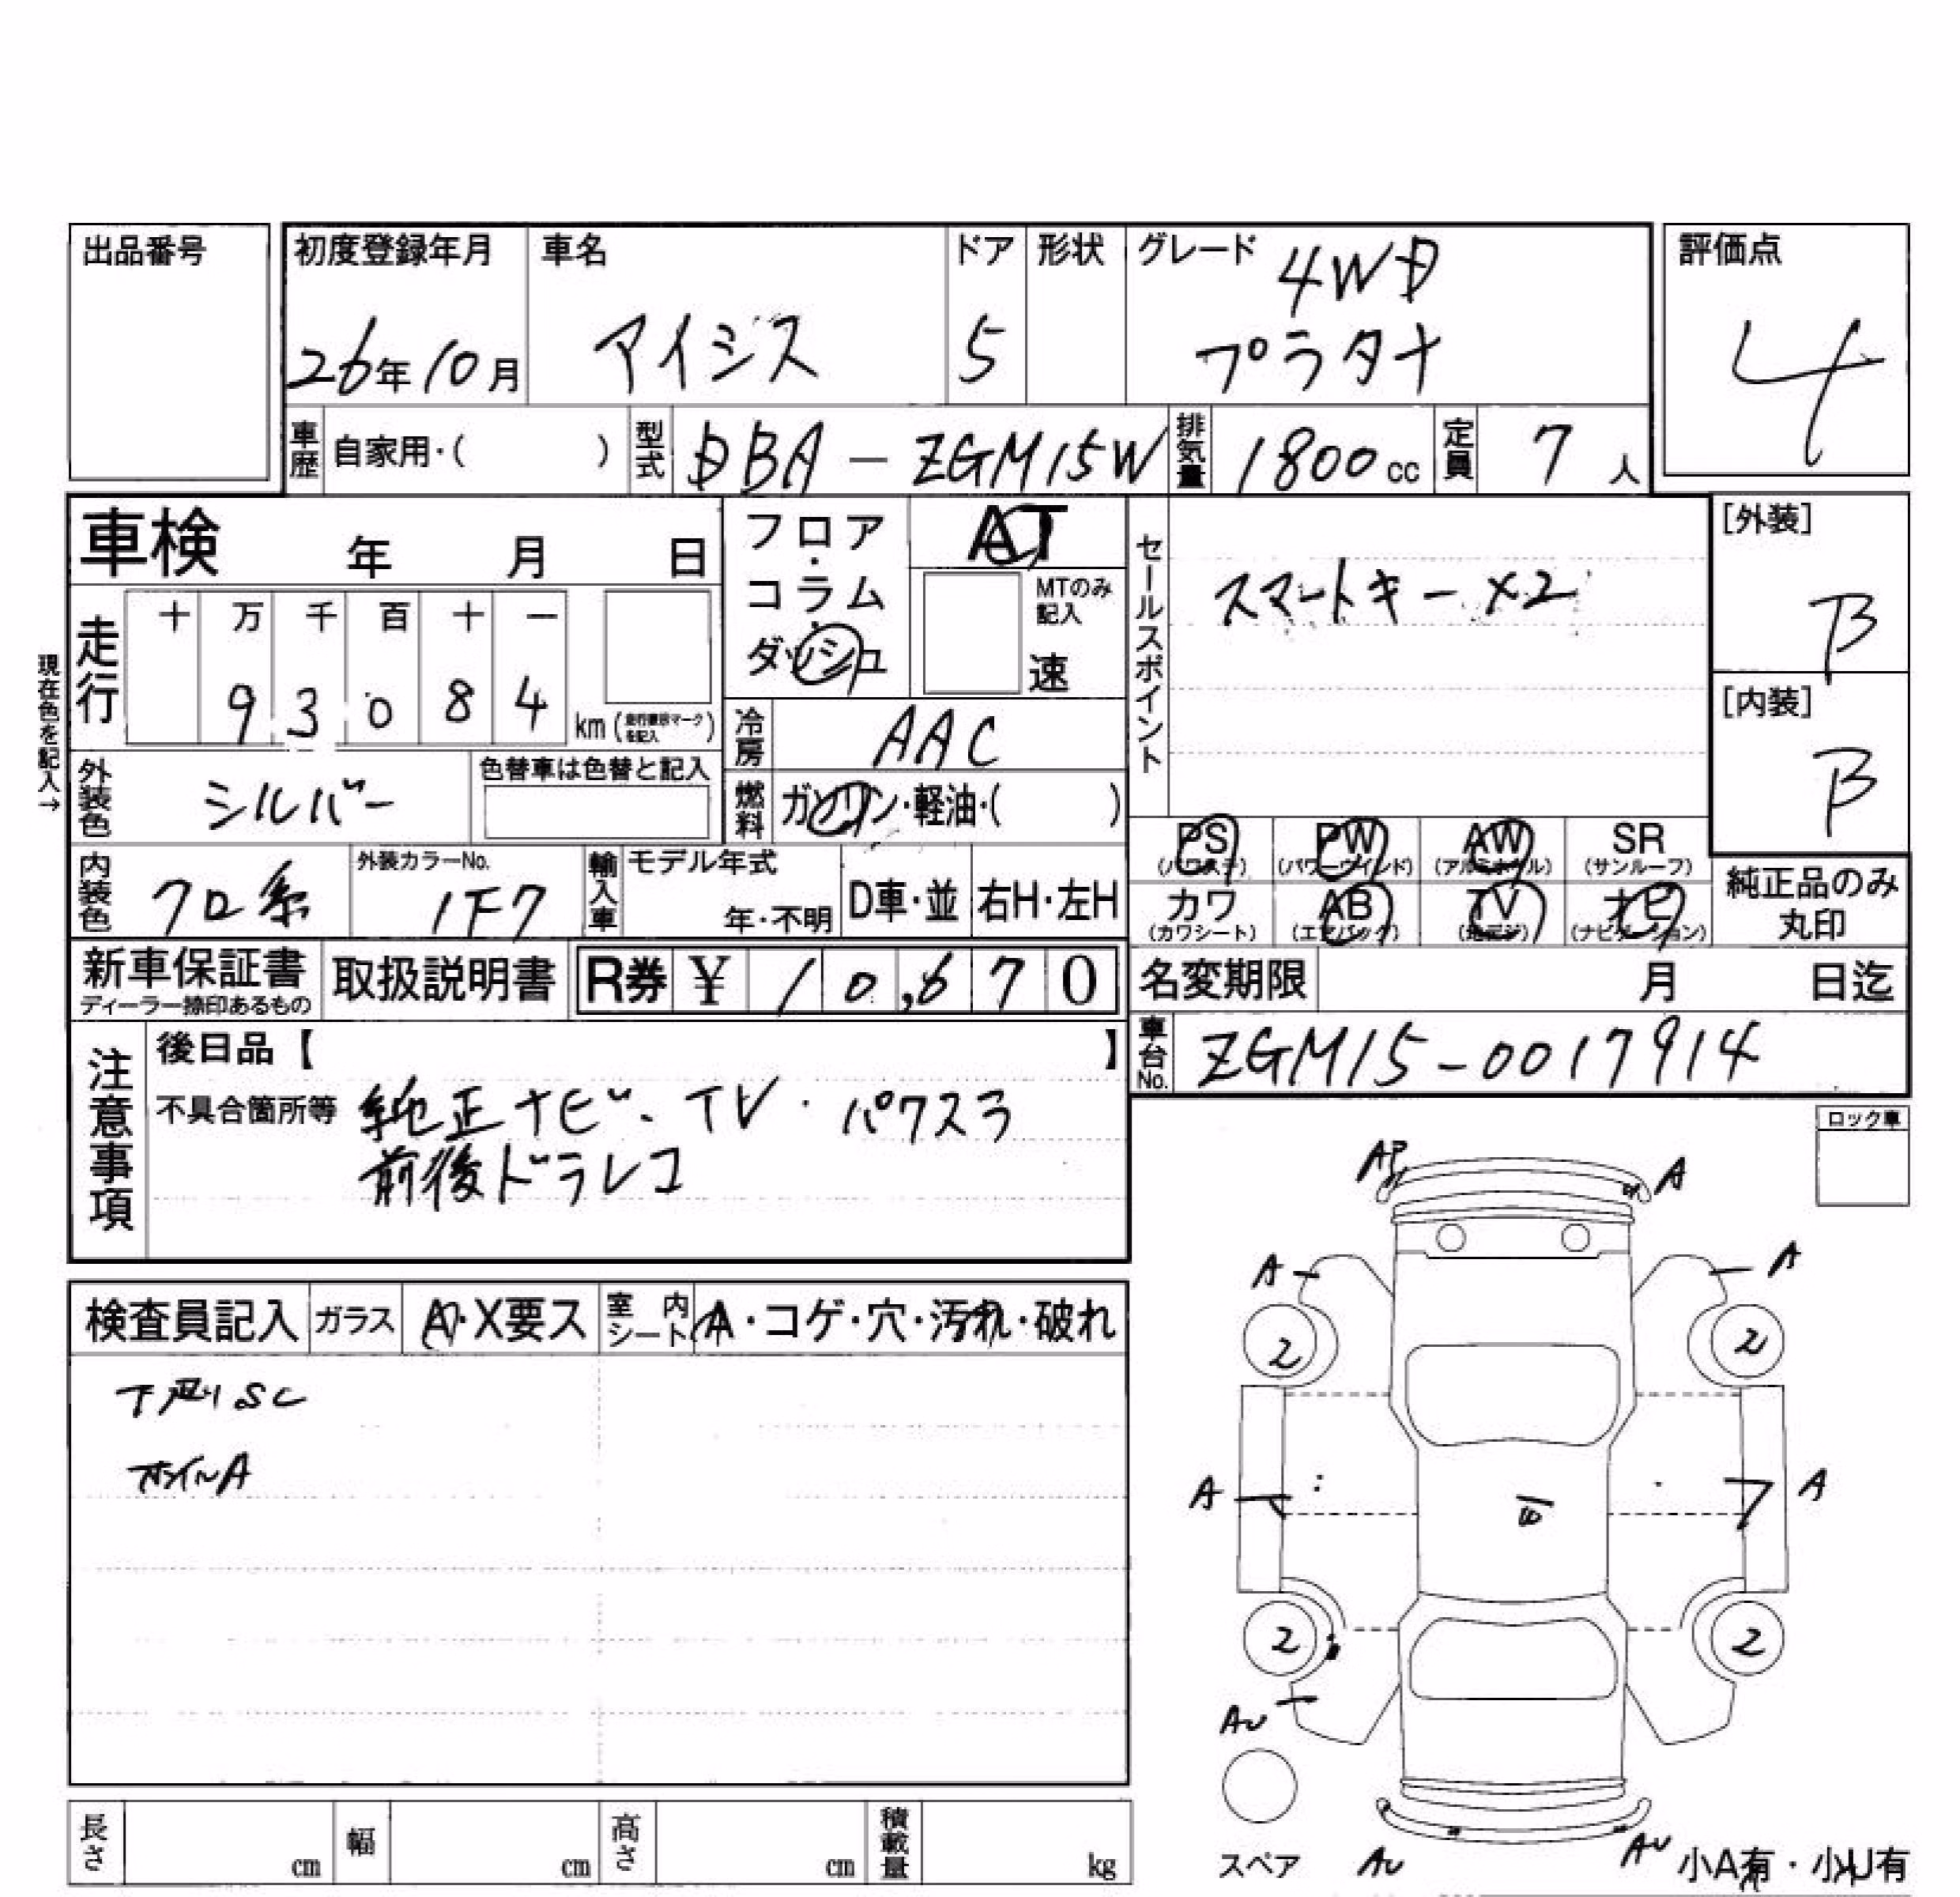 出品番号
初度登録年月 車名 ドア 形状 グレード 4WD 評価点
26年10月 アイシス 5 プラタナ 4
車歴 自家用・( ) 型式 DBA-ZGM15W 排気量 1800cc 定員 7人
車検 年 月 日
フロア・コラム・ダッシュ AT
MTのみ記入
速
セールスポイント スマートキー×2
[外装]
B
[内装]
B
現在色を記入→
走行 十 万 千 百 十 一
9 3 0 8 4 km(走行疑示マークを記入)
冷房 AAC
外装色 シルバー 色替車は色替と記入
燃料 ガソリン・軽油・( )
PS (パワステ) PW (パワーウインド) AW (アルミホイル) SR (サンルーフ)
内装色 クロ系 外装カラーNo. 1F7 輸入車 モデル年式 年・不明 D車・並 右H・左H
カワ (カワシート) AB (エアバッグ) TV (地デジ) ナビ (ナビゲーション)
純正品のみ丸印
新車保証書 ディーラー捺印あるもの 取扱説明書 R券 ¥ 10,670
名変期限 月 日迄
車台No. ZGM15-0017914
注意事項 後日品【 】
不具合箇所等 純正ナビ・TV・パワスラ
前後ドラレコ
ロック車
検査員記入 ガラス A・X要ス 室内シート A・コゲ・穴・汚れ・破れ
下廻りSC
ホイルA
AP A
A A
2 2
A A
2 2
AU
スペア AU AU 小A有・小U有
長さ cm 幅 cm 高さ cm 積載量 kg